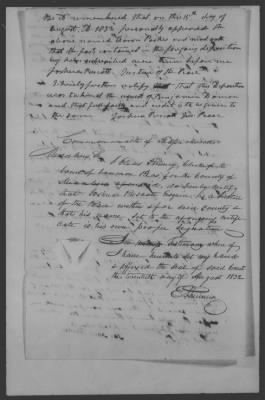 Be it remembered that on this 18th day of
August AD 1832 personally appeared the
above named Aaron Parker and made oath
that the facts contained in the foregoing deposition
by him subscribed were true before me
Joshua Prescott Justice of the Peace
I hereby certify that this deposition
was taken at the request of Benjamin
and that full faith and credit is to be given to
the same Joshua Prescott Jus. Peace
Commonwealth of Massachusetts
Middlesex Ss.
I Elias Phinney Clerk of the
Court of Common Pleas for the County of
Middlesex do hereby certify
that Joshua Prescott Esquire is a Justice
of the Peace within & for said County &
that his name set to the foregoing certifi
cate is his own proper signature
In testimony whereof
I have hereunto set my hand
& affixed the seal of said Court
the twentieth day of August 1832
E Phinney